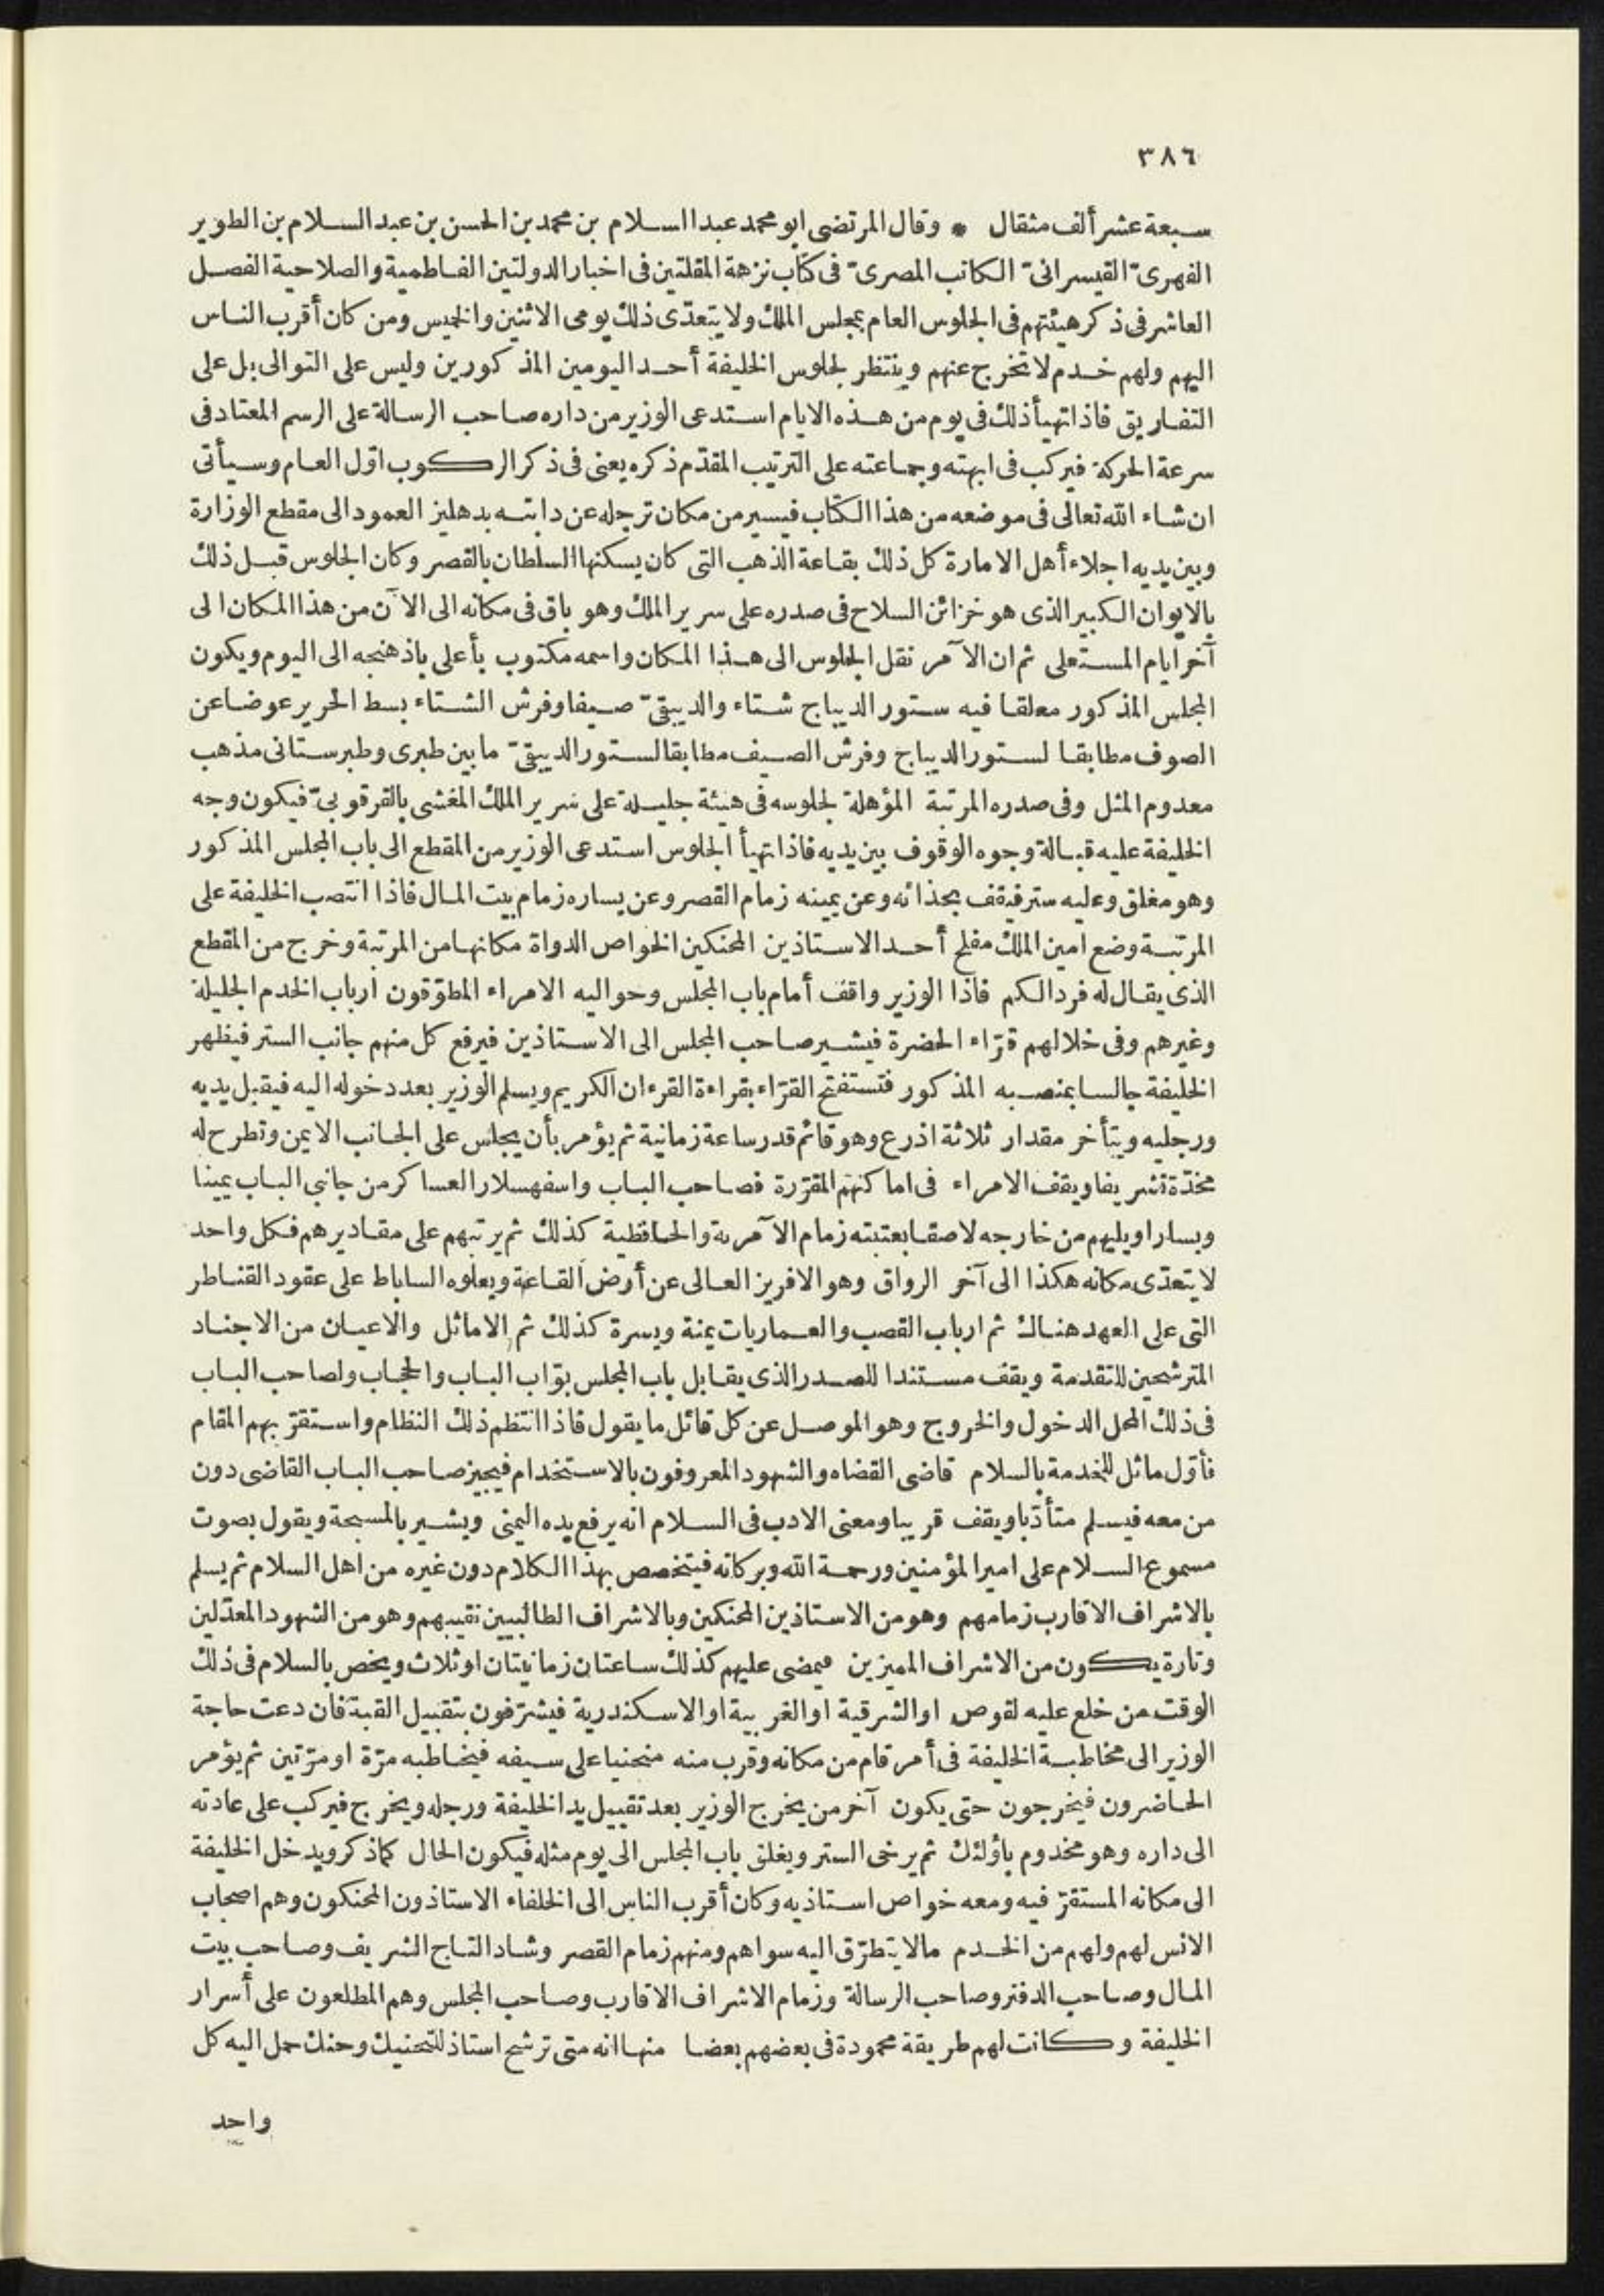 ٣٨٦
سبعة عشر ألف مثقال * وقال المرتضى ابو محمد عبد السلام بن محمد بن الحسن بن عبد السلام بن الطوير
الفهرىّ القيسرانىّ الكاتب المصرىّ فى كتاب نزهة المقلتين فى اخبار الدولتين الفاطمية والصلاحية الفصل
العاشر فى ذكر هيئتهم فى الجلوس العام بمجلس الملك ولا يتعدّى ذلك يومى الاثنين والخميس ومن كان أقرب الناس
اليهم ولهم خدم لا تخرج عنهم وينتظر لجلوس الخليفة أحد اليومين المذكورين وليس على التوالى بل على
التفاريق فاذا تهيأ ذلك فى يوم من هذه الايام استدعى الوزير من داره صاحب الرسالة على الرسم المعتاد فى
سرعة الحركة فيركب فى ابهته وجماعته على الترتيب المقدّم ذكره يعنى فى ذكر الركوب اوّل العام وسيأتى
ان شاء الله تعالى فى موضعه من هذا الكتاب فيسير من مكان ترجله عن دابته بدهليز العمود الى مقطع الوزارة
وبين يديه اجلاء أهل الامارة كل ذلك بقاعة الذهب التى كان يسكنها السلطان بالقصر وكان الجلوس قبل ذلك
بالايوان الكبير الذى هو خزائن السلاح فى صدره على سرير الملك وهو باق فى مكانه الى الآن من هذا المكان الى
آخر ايام المستعلى ثم ان الآمر نقل الجلوس الى هذا المكان واسمه مكتوب بأعلى باذهنجه الى اليوم ويكون
المجلس المذكور معلقا فيه ستور الديباج شتاء والدبيقىّ صيفا وفرش الشتاء بسط الحرير عوضا عن
الصوف مطابقا لستور الديباج وفرش الصيف مطابقا لستور الدبيقىّ ما بين طبرى وطبرستانى مذهب
معدوم المثل وفى صدره المرتبة المؤهلة لجلوسه فى هيئة جليلة على سرير الملك المغشى بالقرقوبىّ فيكون وجه
الخليفة عليه قبالة وجوه الوقوف بين يديه فاذا تهيأ الجلوس استدعى الوزير من المقطع الى باب المجلس المذكور
وهو مغلق وعليه ستر فيقف بحذائه وعن يمينه زمام القصر وعن يساره زمام بيت المال فاذا انتصب الخليفة على
المرتبة وضع امين الملك مفلح أحد الاستاذين المحنكين الخواص الدواة مكانها من المرتبة وخرج من المقطع
الذى يقال له فرد الكم فاذا الوزير واقف أمام باب المجلس وحواليه الامراء المطوّقون ارباب الخدم الجليلة
وغيرهم وفى خلالهم قرّاء الحضرة فيشير صاحب المجلس الى الاستاذين فيرفع كل منهم جانب الستر فيظهر
الخليفة جالسا بمنصبه المذكور فتستفتح القرّاء بقراءة القرءان الكريم ويسلم الوزير بعد دخوله اليه فيقبل يديه
ورجليه ويتأخر مقدار ثلاثة اذرع وهو قائم قدر ساعة زمانية ثم يؤمر بأن يجلس على الجانب الايمن وتطرح له
مخدّة تشريفا ويقف الامراء فى اماكنهم المقرّرة فصاحب الباب واسفهسلار العساكر من جانبى الباب يمينا
ويسارا ويليهم من خارجه لاصقا بعتبته زمام الآمرية والحافظية كذلك ثم يرتبهم على مقاديرهم فكل واحد
لا يتعدّى مكانه هكذا الى آخر الرواق وهو الافريز العالى عن أرض القاعة ويعلوه الساباط على عقود القناطر
التى على العهد هناك ثم ارباب القصب والعماريات يمنة ويسرة كذلك ثم الاماثل والاعيان من الاجناد
المترشحين للتقدمة ويقف مستندا للصدر الذى يقابل باب المجلس بوّاب الباب والحجاب ولصاحب الباب
فى ذلك المحل الدخول والخروج وهو الموصل عن كل قائل ما يقول فاذا انتظم ذلك النظام واستقرّ بهم المقام
فأوّل ماثل للخدمة بالسلام قاضى القضاه والشهود المعروفون بالاستخدام فيجيز صاحب الباب القاضى دون
من معه فيسلم متأدّبا ويقف قريبا ومعنى الادب فى السلام انه يرفع يده اليمنى ويشير بالمسبحة ويقول بصوت
مسموع السلام على امير المؤمنين ورحمة الله وبركاته فيتخصص بهذا الكلام دون غيره من اهل السلام ثم يسلم
بالاشراف الاقارب زمامهم وهو من الاستاذين المحنكين وبالاشراف الطالبيين نقيبهم وهو من الشهود المعدّلين
وتارة يكون من الاشراف المميزين فيمضى عليهم كذلك ساعتان زمانيتان او ثلاث ويخص بالسلام فى ذلك
الوقت من خلع عليه لقوص او الشرقية او الغربية او الاسكندرية فيشرّفون بتقبيل القبة فان دعت حاجة
الوزير الى مخاطبة الخليفة فى أمر قام من مكانه وقرب منه منحنيا على سيفه فيخاطبه مرّة او مرّتين ثم يؤمر
الحاضرون فيخرجون حتى يكون آخر من يخرج الوزير بعد تقبيل يد الخليفة ورجله ويخرج فيركب على عادته
الى داره وهو مخدوم بأولئك ثم يرخى الستر ويغلق باب المجلس الى يوم مثله فيكون الحال كما ذكر ويدخل الخليفة
الى مكانه المستقرّ فيه ومعه خواص استاذيه وكان أقرب الناس الى الخلفاء الاستاذون المحنكون وهم اصحاب
الانس لهم ولهم من الخدم مالا يتطرّق اليه سواهم ومنهم زمام القصر وشاد التاج الشريف وصاحب بيت
المال وصاحب الدفتر وصاحب الرسالة وزمام الاشراف الاقارب وصاحب المجلس وهم المطلعون على أسرار
الخليفة وكانت لهم طريقة محمودة فى بعضهم بعضا منها انه متى ترشح استاذ للتحنيك وحنك حمل اليه كل
واحد